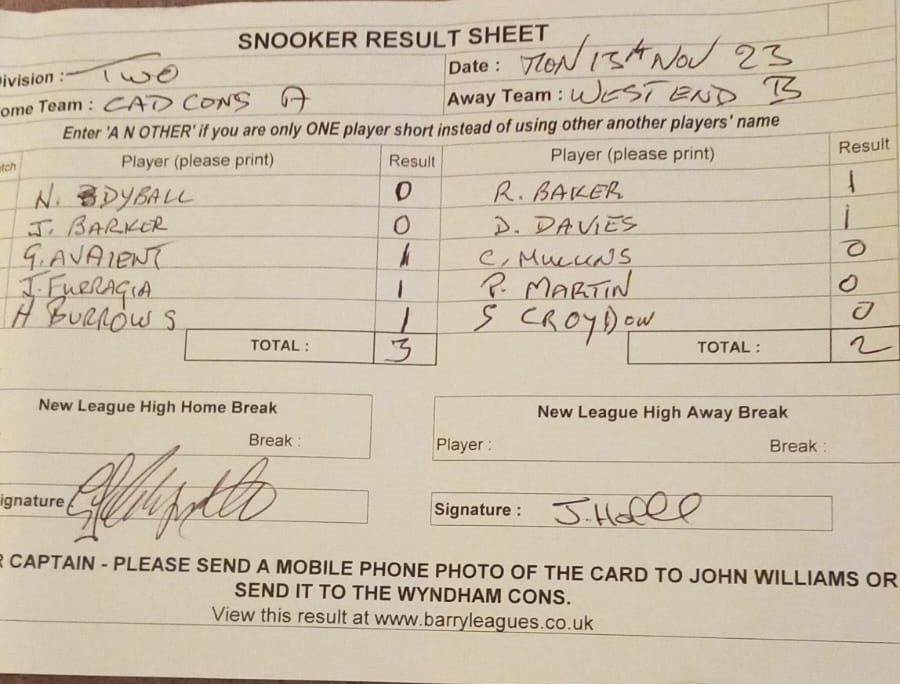 SNOOKER RESULT SHEET
ivision : TWO Date : MON 13th NOV 23
ome Team : CAD CONS A Away Team : WEST END B
Enter 'A N OTHER' if you are only ONE player short instead of using other another players' name
tch Player (please print) Result Player (please print) Result
N. DYBALL 0 R. BAKER 1
J. BARKER 0 D. DAVIES 1
G. AVAIENT 1 C. MULLINS 0
J. FURRAGIA 1 P. MARTIN 0
A BURROWS 1 S CROYDOW 0
TOTAL : 3 TOTAL : 2
New League High Home Break New League High Away Break
Break : Player : Break :
ignature Signature : J. Hall
R CAPTAIN - PLEASE SEND A MOBILE PHONE PHOTO OF THE CARD TO JOHN WILLIAMS OR
SEND IT TO THE WYNDHAM CONS.
View this result at www.barryleagues.co.uk